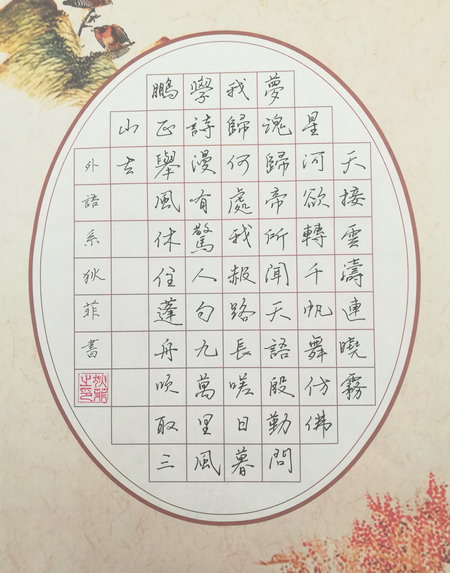 天接雲濤連曉霧
星河欲轉千帆舞仿佛
夢魂歸帝所聞天語殷勤問
我歸何處我報路長嗟日暮
學詩漫有驚人句九萬里風
鵬正舉風休住蓬舟吹取三
山去
外語系狄菲書
狄菲之印